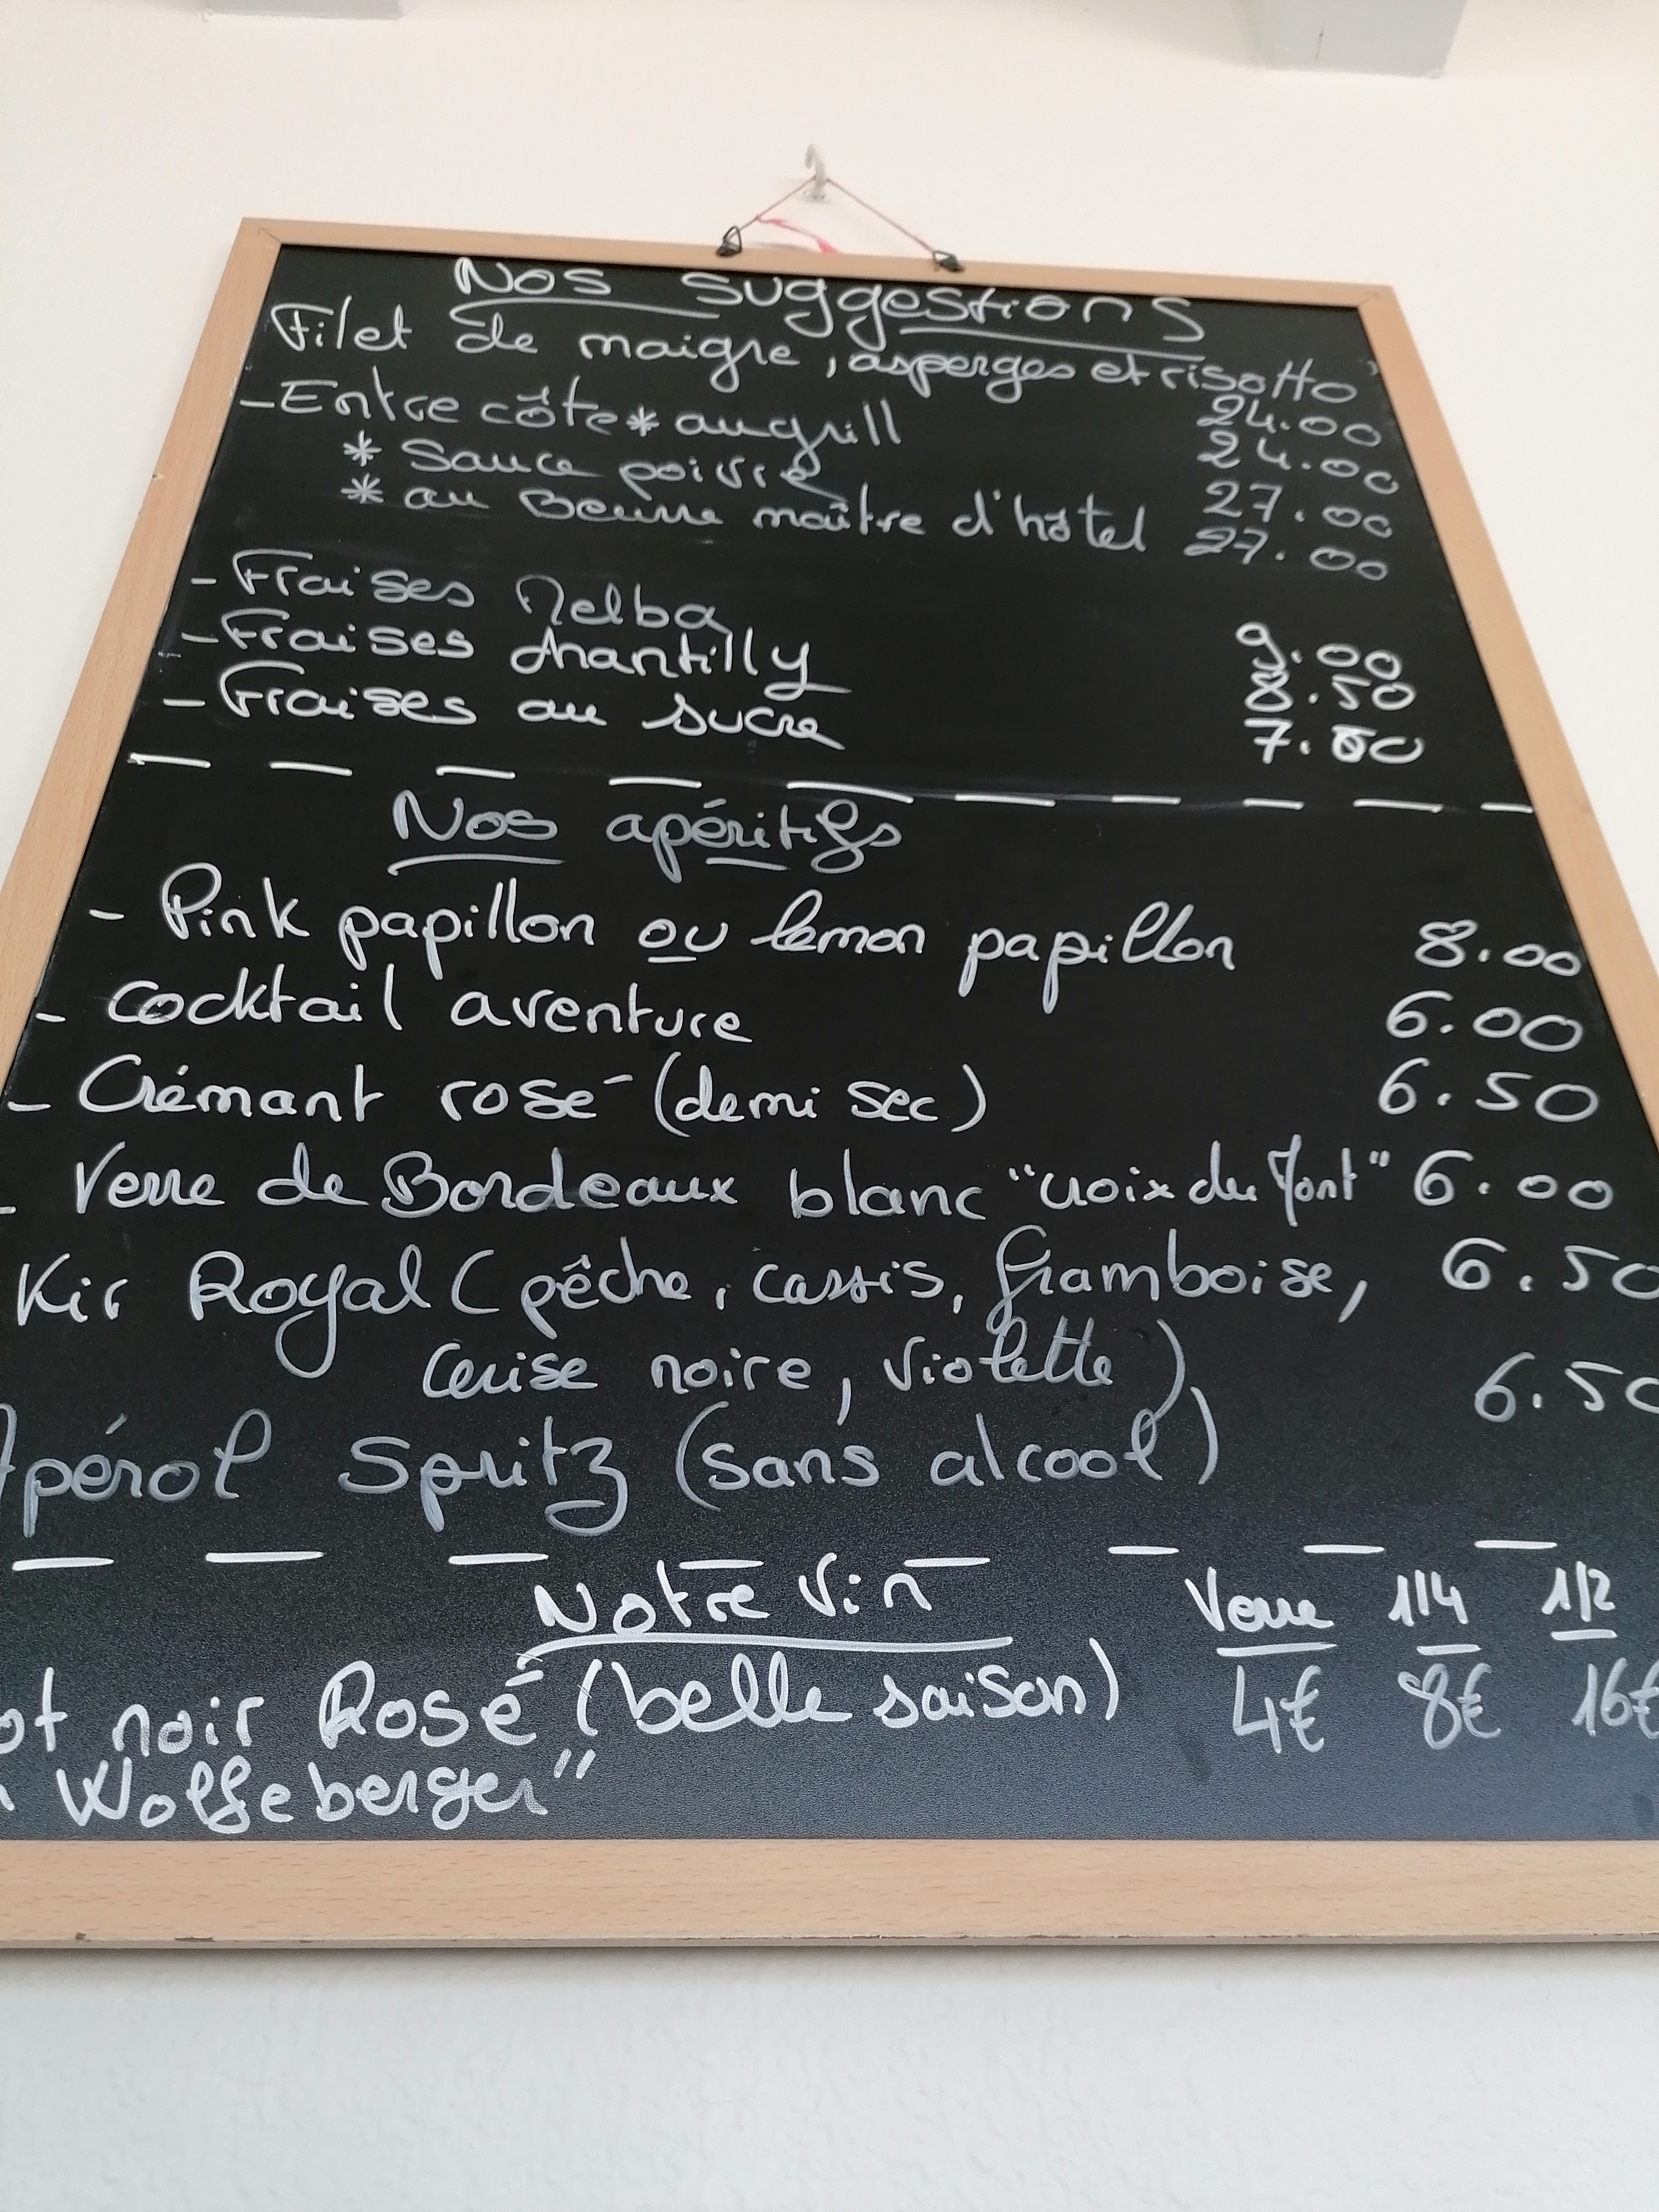 Nos suggestions
Filet de maigre, asperges et risotto
24.00
- Entre côte * au grill 24.00
* Sauce poivre 27.00
* au Beurre maître d'hôtel 27.00
- Fraises Melba 9.00
- Fraises chantilly 8.50
- Fraises au sucre
Nos apéritifs
- Pink papillon ou lemon papillon 8.00
- Cocktail aventure 6.00
- Crémant rosé (demi sec) 6.50
- Verre de Bordeaux blanc "croix du Mont" 6.00
Kir Royal (pêche, cassis, framboise, 6.50
cerise noire, violette)
6.50
Apérol Spritz (sans alcool)
Notre Vin Verre 1/4 1/2
ot noir Rosé (belle saison) 4€ 8€ 16€
Wolfeberger"